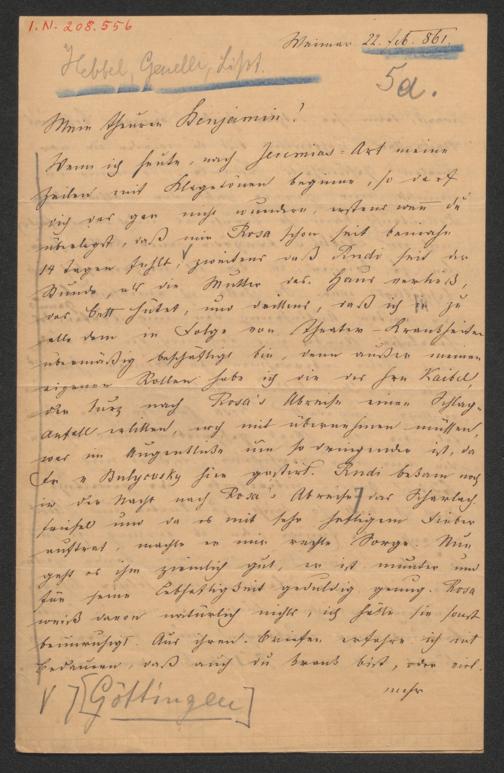 I.N. 208.556
Weimar 22. Feb. 861.
Hebbel, Genelli, Liszt.
5a.
Mein theurer Benjamin!
Wenn ich heute, nach Jeremias-Art meine
Zeilen mit Klagetönen beginne, so darf
dich das gar nicht wundern, erstens wenn du
überlegst, daß mir Rosa schon seit beinahe
14 Tagen fehlt, zweitens daß Rudi seit der
Stunde, als die Mutter das Haus verließ,
das Bett hütet, und drittens, daß ich zu
alle dem in Folge von Theater-Krankheiten
übermäßig beschäftigt bin, denn außer meinen
eigenen Rollen habe ich die des Hrn Kaibel,
der kurz nach Rosa's Abreise einen Schlag-
anfall erlitten, noch mit übernehmen müssen,
was im Augenblicke um so dringender ist, da
Fr v Bulyovsky hier gastirt. Rudi bekam noch
in der Nacht nach Rosa's Abreise das Scharlach
und da es mit sehr heftigem Fieber
auftrat, machte er mir rechte Sorge. Nun
geht es ihm ziemlich gut, er ist munter und
für seine Lebhaftigkeit geduldig genug. Rosa
weiß davon natürlich nichts, ich hätte sie sonst
beunruhigt. Aus ihren Briefen erfahre ich mit
Bedauern, daß auch du krank bist, oder viel-
mehr
[Göttingen]